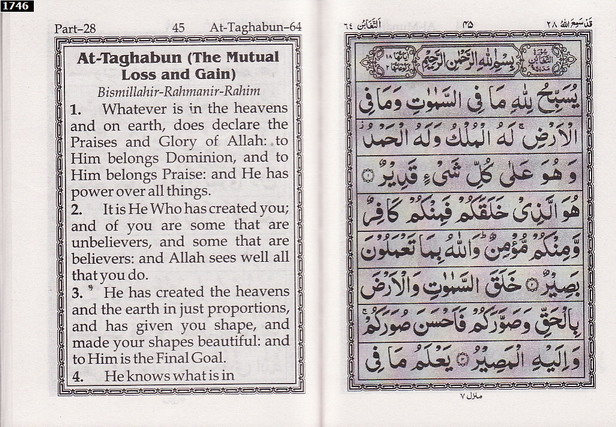 1746
Part-28 45 At-Taghabun-64
At-Taghabun (The Mutual
Loss and Gain)
Bismillahir-Rahmanir-Rahim
1. Whatever is in the heavens
and on earth, does declare the
Praises and Glory of Allah: to
Him belongs Dominion, and to
Him belongs Praise: and He has
power over all things.
2. It is He Who has created you;
and of you are some that are
unbelievers, and some that are
believers: and Allah sees well all
that you do.
3. He has created the heavens
and the earth in just proportions,
and has given you shape, and
made your shapes beautiful: and
to Him is the Final Goal.
4. He knows what is in
قَدْ سَمِعَ اللهُ ٢٨ ٤٥ اَلتَّغَابُن ٦٤
بِسْمِ اللهِ الرَّحْمٰنِ الرَّحِيْمِ
يُسَبِّحُ لِلّٰهِ مَا فِى السَّمٰوٰتِ وَمَا فِى
الْاَرْضِ ۚ لَهُ الْمُلْكُ وَلَهُ الْحَمْدُ
وَهُوَ عَلٰى كُلِّ شَىْءٍ قَدِيْرٌ ۝١
هُوَ الَّذِىْ خَلَقَكُمْ فَمِنْكُمْ كَافِرٌ
وَّمِنْكُمْ مُّؤْمِنٌ ؕ وَاللهُ بِمَا تَعْمَلُوْنَ
بَصِيْرٌ ۝٢ خَلَقَ السَّمٰوٰتِ وَالْاَرْضَ
بِالْحَقِّ وَصَوَّرَكُمْ فَاَحْسَنَ صُوَرَكُمْ ۚ
وَاِلَيْهِ الْمَصِيْرُ ۝٣ يَعْلَمُ مَا فِى
منزل ٧